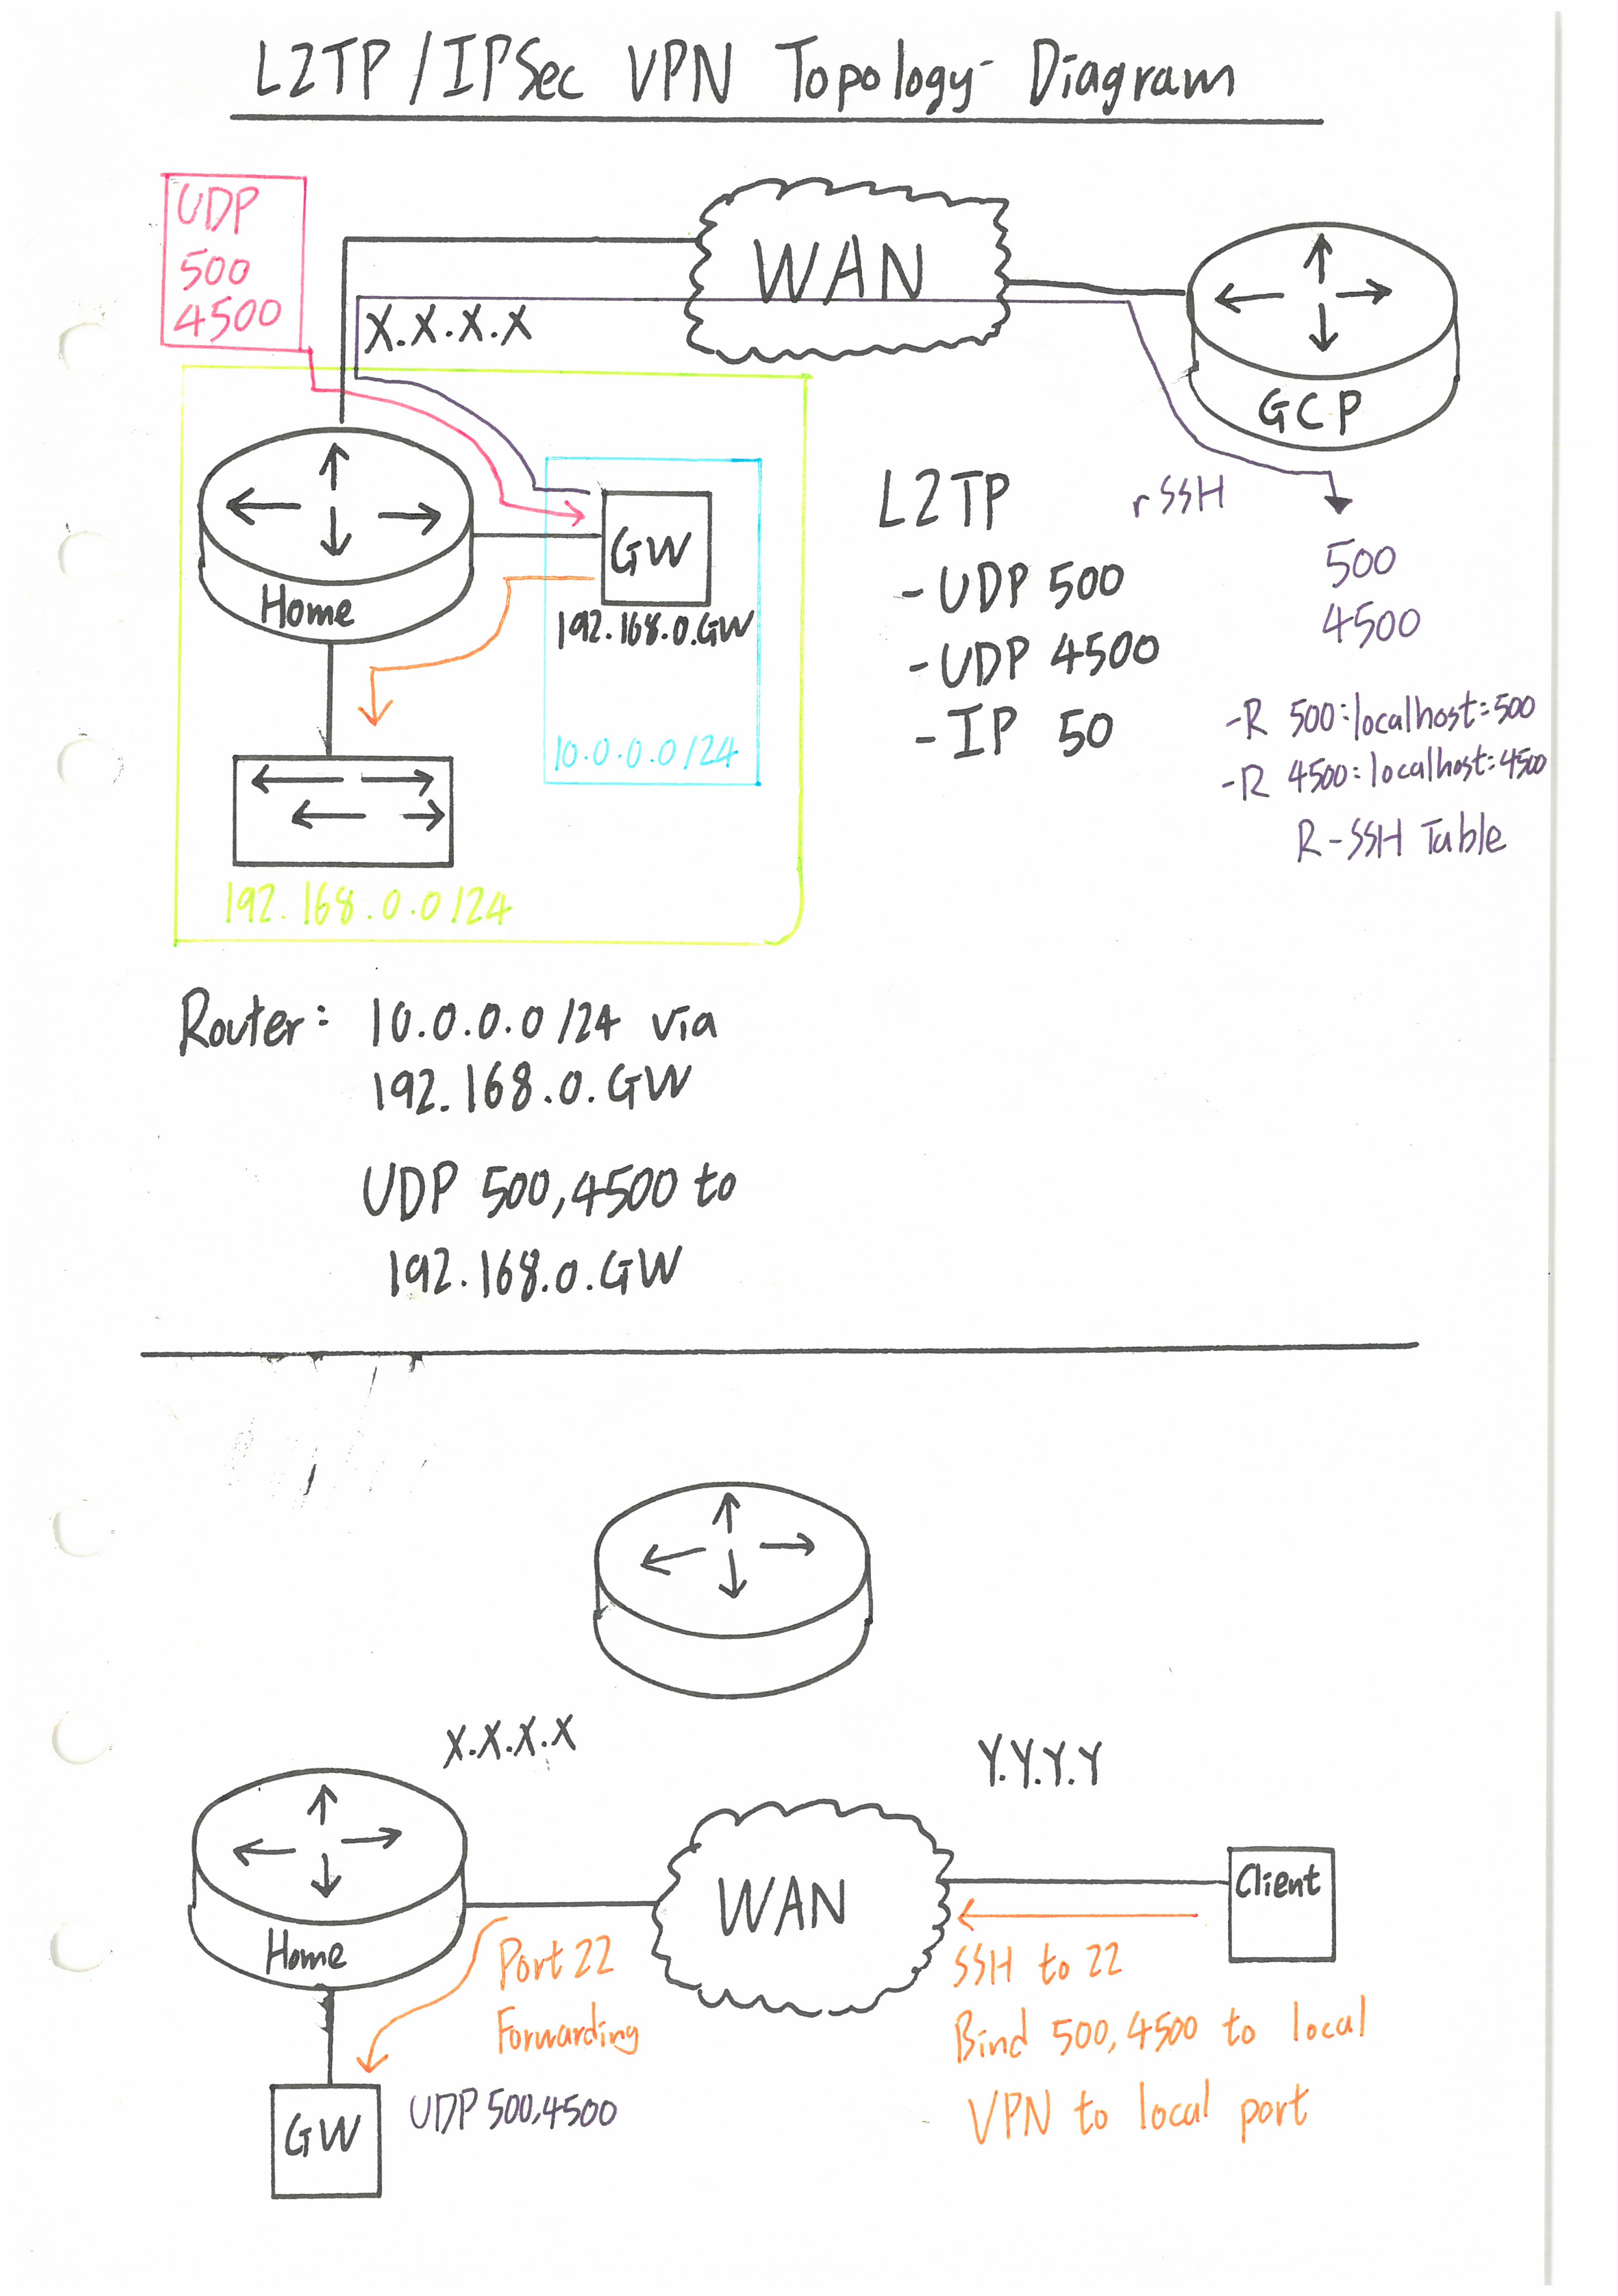 L2TP/IPSec VPN Topology Diagram
UDP
500
4500
X.X.X.X
WAN
GCP
Home
GW
192.168.0.GW
10.0.0.0/24
192.168.0.0/24
L2TP
-UDP 500
-UDP 4500
-IP 50
rSSH
500
4500
-R 500:localhost:500
-R 4500:localhost:4500
R-SSH Table
Router: 10.0.0.0/24 via
192.168.0.GW
UDP 500,4500 to
192.168.0.GW
X.X.X.X
Y.Y.Y.Y
Home
WAN
Client
Port 22
Forwarding
SSH to 22
Bind 500,4500 to local
VPN to local port
GW
UDP 500,4500